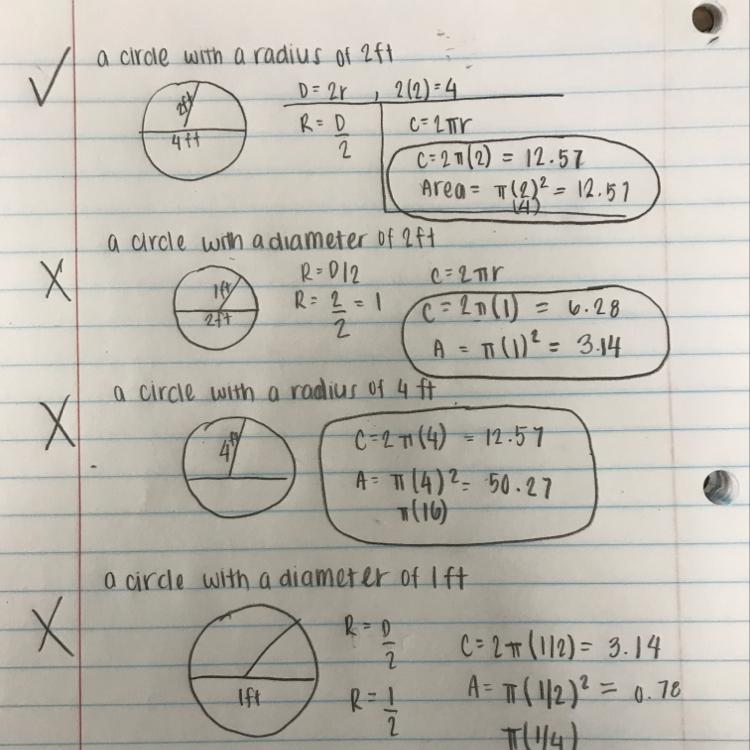 ✓ a circle with a radius of 2ft
2ft
4ft
D = 2r , 2(2) = 4
R = D/2
C = 2πr
C = 2π(2) = 12.57
Area = π(2)² = 12.57
(4)
X a circle with a diameter of 2ft
1ft
2ft
R = D/2
R = 2/2 = 1
C = 2πr
C = 2π(1) = 6.28
A = π(1)² = 3.14
X a circle with a radius of 4 ft
4ft
C = 2π(4) = 12.57
A = π(4)² = 50.27
π(16)
X a circle with a diameter of 1ft
1ft
R = D/2
R = 1/2
C = 2π(1/2) = 3.14
A = π(1/2)² = 0.78
π(1/4)